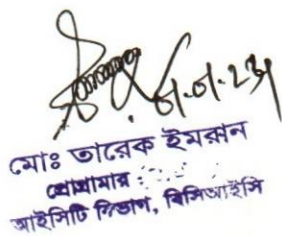 মোঃ তারেক ইমরান
প্রোগ্রামার
আইসিটি বিভাগ, বিসিআইসি